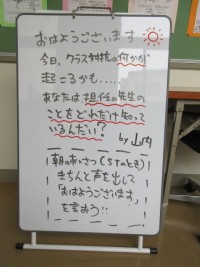 おはようございます
今日、クラス対抗の何かが
起こるかも.....
あなたは、担任の先生の
ことをどれだけ知って
いるんだい？
by 山内
朝のあいさつ(STのとき)
きちんと声を出して
「おはようございます」
を言おう!!